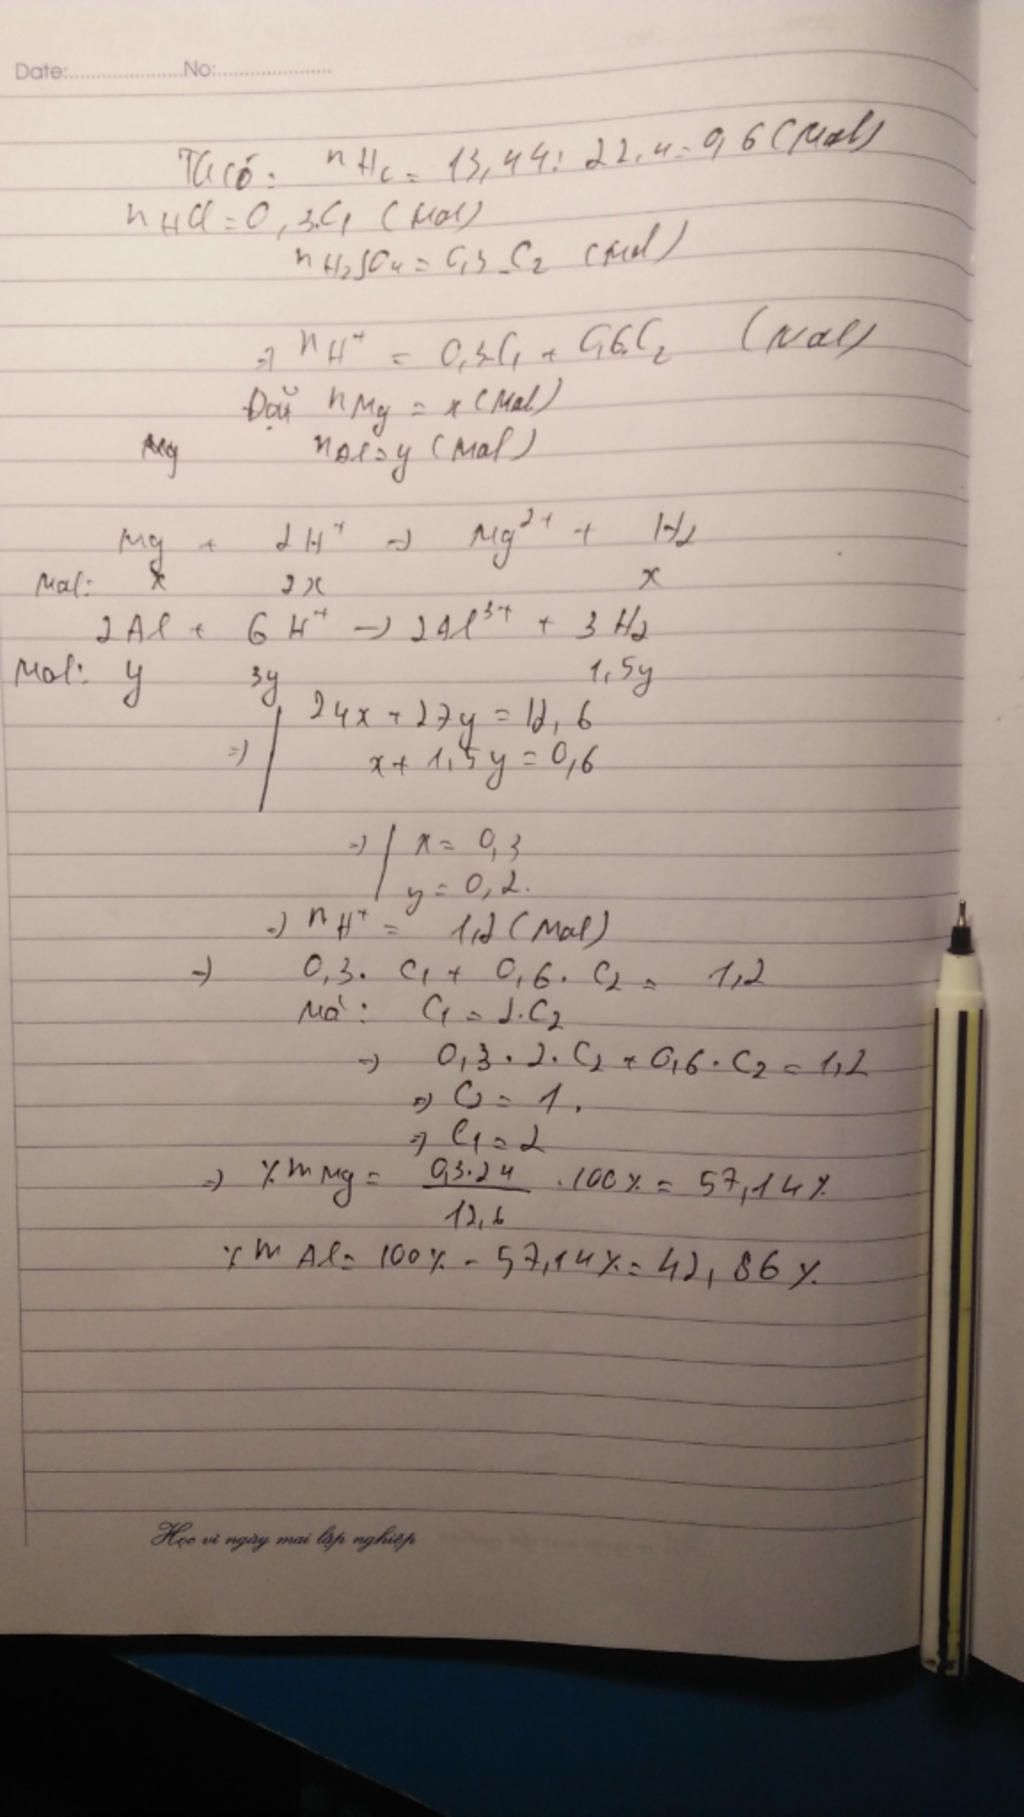 Date:..................No:..................
Ta có: nH2 = 13,44 : 22,4 = 0,6 (Mol)
nHCl = 0,3.C1 (Mol)
nH2SO4 = 0,3.C2 (Mol)
=> nH+ = 0,3.C1 + 0,6.C2 (Mol)
Đặt nMg = x (Mol)
Mg nAl = y (Mol)
Mg + 2H+ -> Mg2+ + H2
Mol: x 2x x
2Al + 6H+ -> 2Al3+ + 3H2
Mol: y 3y 1,5y
24x + 27y = 12,6
=> x + 1,5y = 0,6
=> x = 0,3
y = 0,2.
=> nH+ = 1,2 (Mol)
=> 0,3 . C1 + 0,6 . C2 = 1,2
Mà: C1 = 2.C2
=> 0,3 . 2 . C2 + 0,6 . C2 = 1,2
=> C2 = 1.
=> C1 = 2
=> %mMg = 0,3.24 / 12,6 . 100% = 57,14%
%mAl = 100% - 57,14% = 42,86%
Học vì ngày mai lập nghiệp